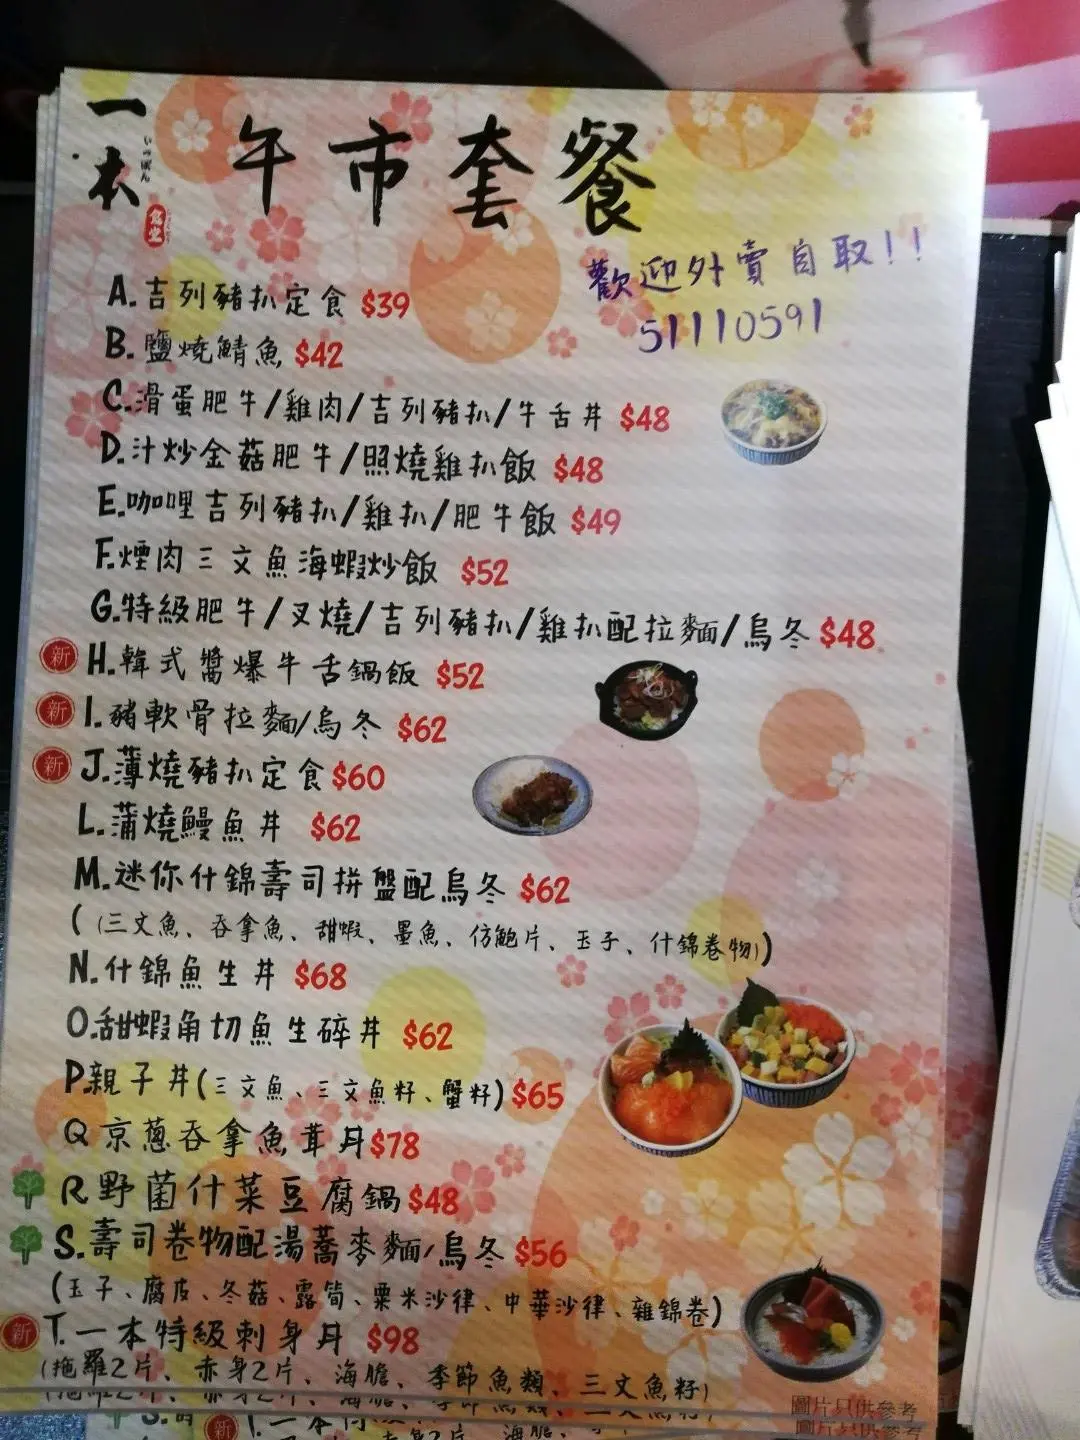 一本
いっぽん
食堂
午市套餐
歡迎外賣自取!!
51110591
A.吉列豬扒定食 $39
B.鹽燒鯖魚 $42
C.滑蛋肥牛/雞肉/吉列豬扒/牛舌丼 $48
D.汁炒金菇肥牛/照燒雞扒飯 $48
E.咖哩吉列豬扒/雞扒/肥牛飯 $49
F.煙肉三文魚海蝦炒飯 $52
G.特級肥牛/叉燒/吉列豬扒/雞扒配拉麵/烏冬 $48
新 H.韓式醬爆牛舌鍋飯 $52
新 I.豬軟骨拉麵/烏冬 $62
新 J.薄燒豬扒定食 $60
L.蒲燒鰻魚丼 $62
M.迷你什錦壽司拼盤配烏冬 $62
((三文魚、吞拿魚、甜蝦、墨魚、仿鮑片、玉子、什錦卷物))
N.什錦魚生丼 $68
O.甜蝦角切魚生碎丼 $62
P.親子丼(三文魚、三文魚籽、蟹籽) $65
Q 京蔥吞拿魚茸丼 $78
R 野菌什菜豆腐鍋 $48
S.壽司卷物配湯蕎麥麵/烏冬 $56
(玉子、腐皮、冬菇、露筍、粟米沙律、中華沙律、雜錦卷)
新 T.一本特級刺身丼 $98
(拖羅2片、赤身2片、海膽、季節魚類、三文魚籽)
圖片只供參考